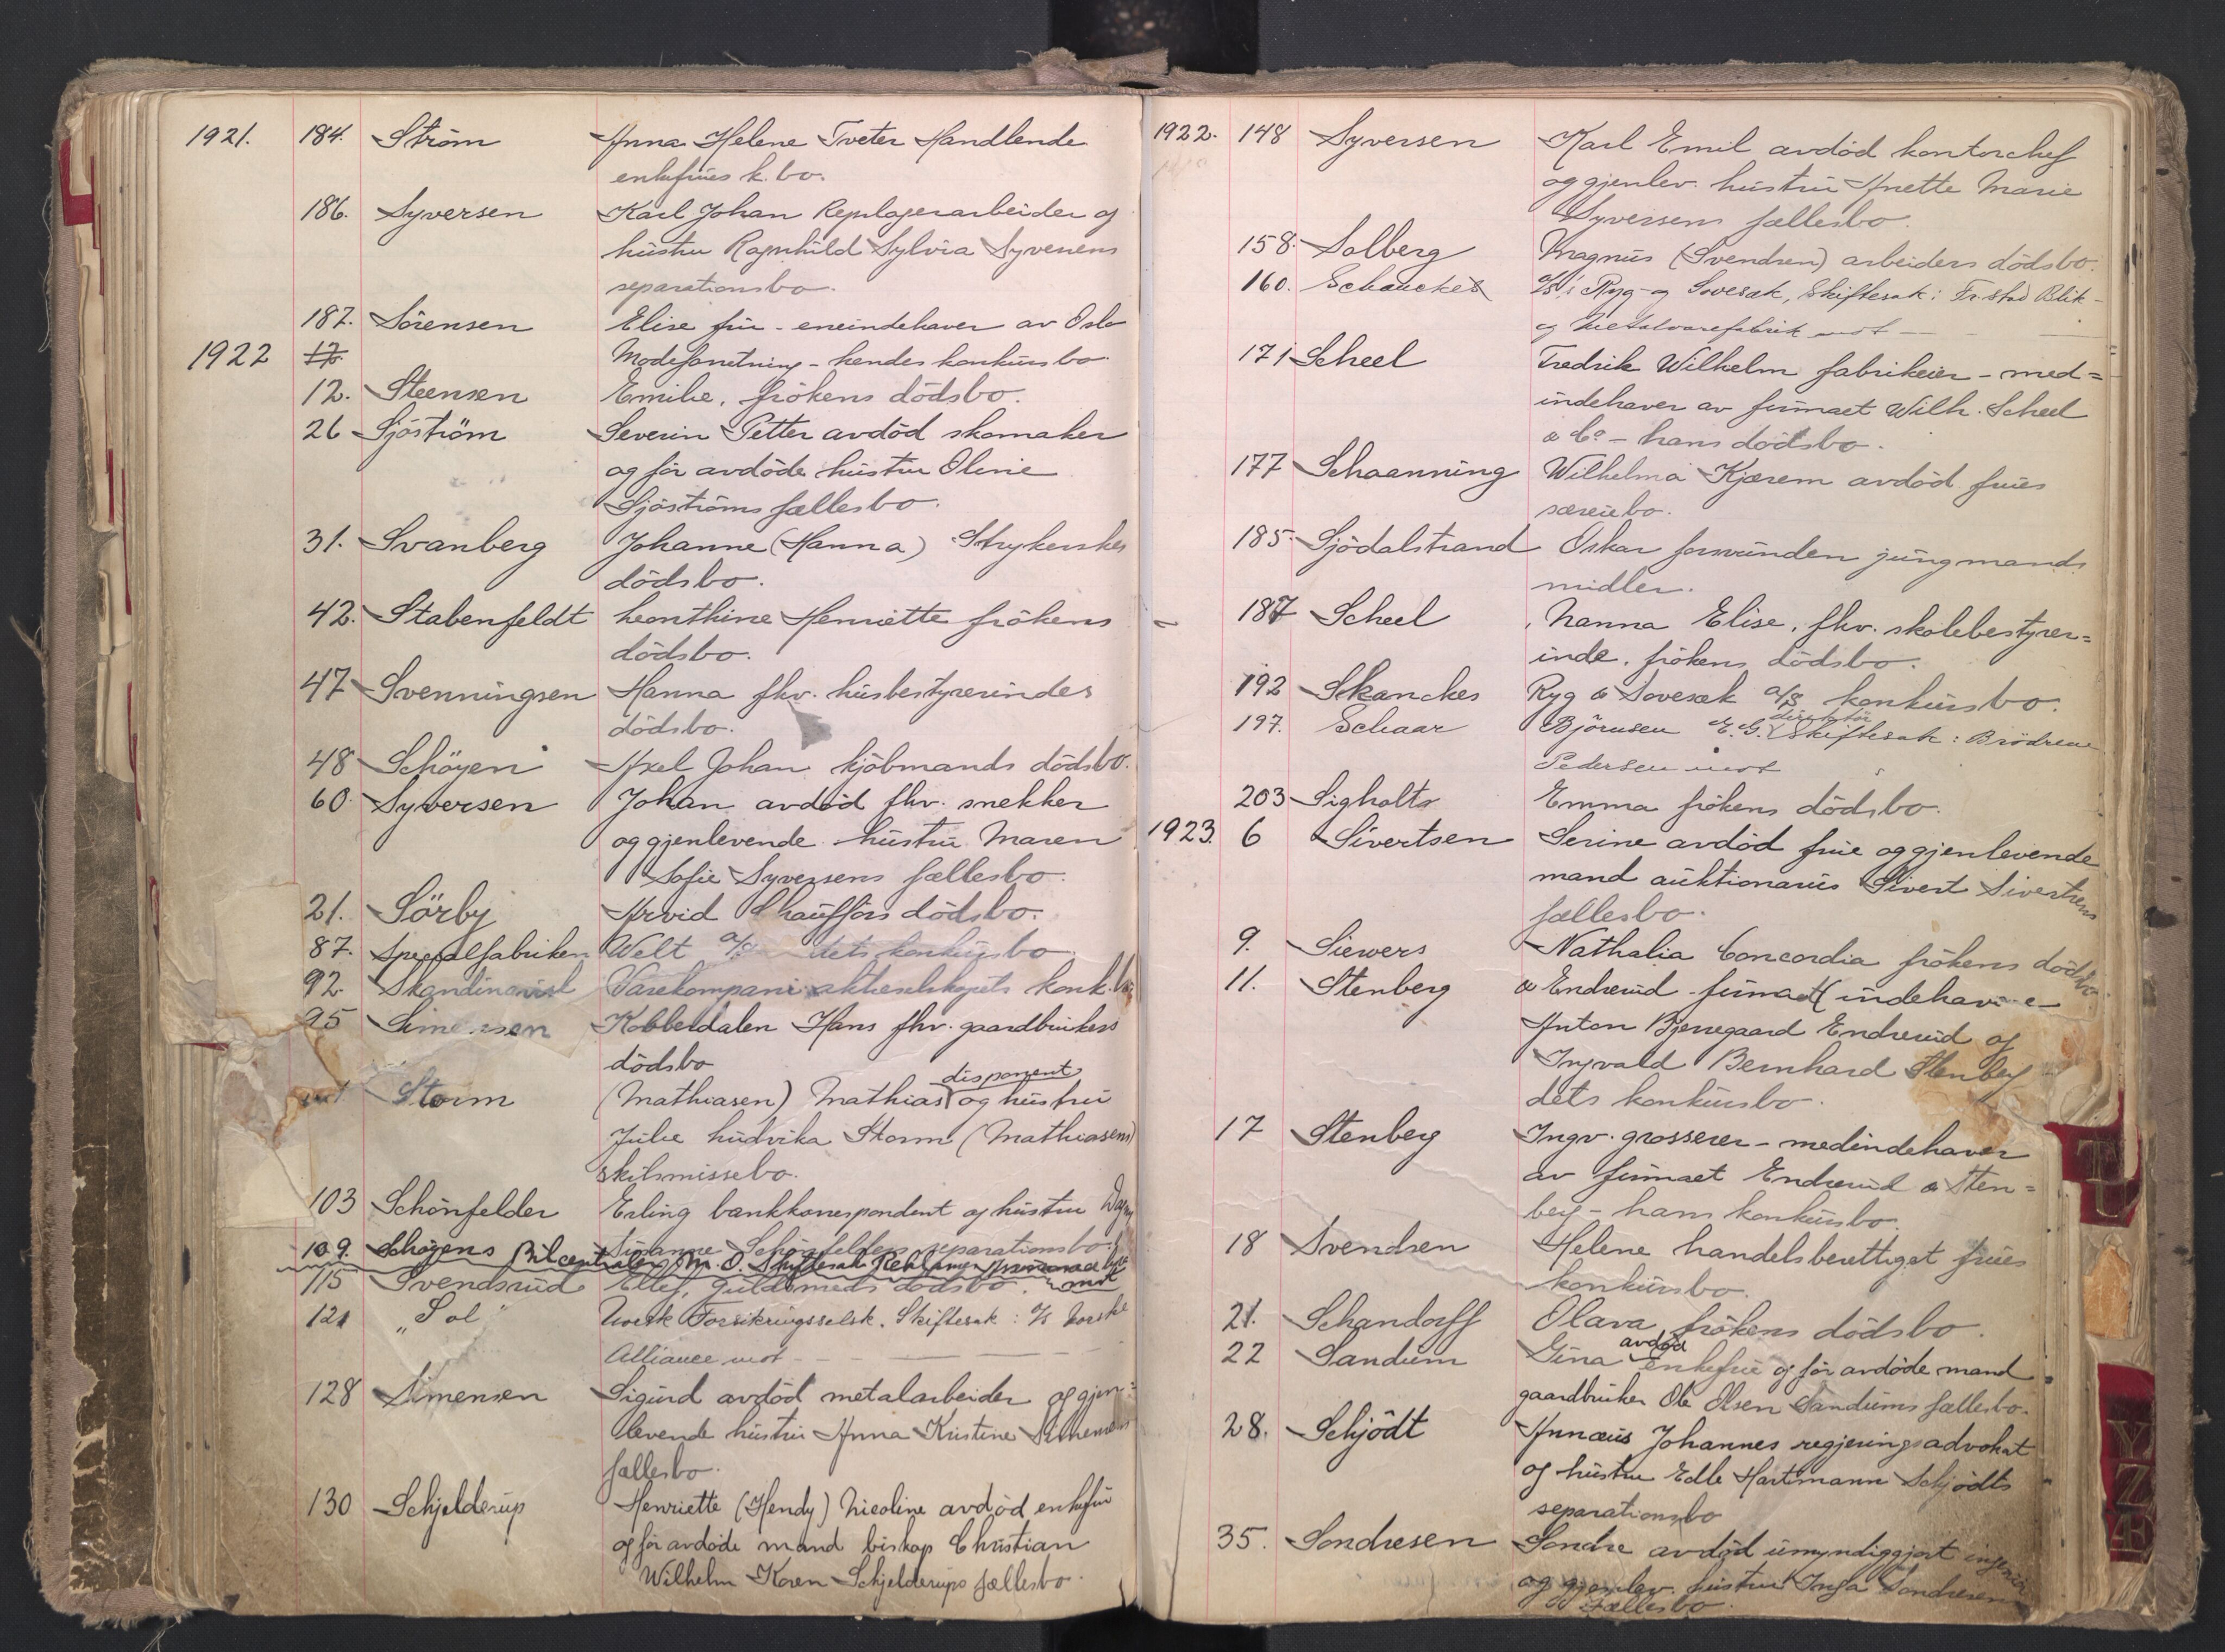 1921. 184. Ström Anna Helene Tveter Handlende
enkefrues k. bo.
186. Syversen Karl Johan Repslagerarbeider og
hustru Ragnhild Sylvia Syversens
separationsbo.
187. Sörensen Elise frue - eneindehaver av Oslo
1922 17. Modeforretning - hendes konkursbo
12. Steensen Emilie, frökens dödsbo.
26 Sjöström Severin Petter avdöd skomaker
og før avdöde hustru Oline
Sjöströms fællesbo.
31. Svanberg Johanne (Hanna) Strykerskes
dödsbo.
42. Stabenfeldt Leonthine Henriette frökens
dödsbo.
47 Svenningsen Hanna fhv. husbestyrerindes
dödsbo.
48 Schöyen Axel Johan kjöbmands dödsbo.
60. Syversen Johan avdöd fhv. snekker
og gjenlevende hustru Maren
Sofie Syversens fællesbo.
21. Sörby Arvid Chaufförs dödsbo.
87. Specialfabriken Welt a/s dets konkursbo
92. Skandinavisk Varekompani aktieselskapets konk. bo.
95 Simensen Kobberdalen Hans fhv. gaardbrukers
dödsbo
Storm (Mathiasen) Mathias disponent og hustru
Julie Ludvika Storm (Mathiasens)
skilsmissebo.
103 Schönfelder Erling bankkorrespondent og hustru Dagny
Susanne Schönfelders separationsbo.
109. Schøyens Bilcentraler M. O. Skiftesak Reklame mot
115 Svendsrud Ellef, guldsmeds dödsbo.
121 "Sol" Norsk Forsikringsselsk. Skiftesak: A/s Norske
Alliance mot - -
128 Simensen Sigurd avdöd metalarbeider og gjen-
levende hustru Anna Kristine Simensens
fællesbo.
130 Schjelderup Henriette (Hendy) Nicoline avdöd enkefru
og før avdöde mand biskop Christian
Wilhelm Koren Schjelderups fællesbo.
1922. 148 Syversen Karl Emil avdöd kontorchef
og gjenlev. hustru Anette Marie
Syversens fællesbo.
158. Solberg Magnus (Svendsen) arbeiders dödsbo.
160. Schanckes A/S i Ryg- og Sovesæk, Skiftesak: Fr.stad Blik-
og Metalvarefabrik mot -
171 Scheel Fredrik Wilhelm fabrikeier - med=
indehaver av firmaet Wilh. Scheel
& Co - hans dödsbo.
177 Schaanning Wilhelma Kjærem avdöd frues
særeiebo.
185. Sjödalstrand Oskar forsvunden jungmands
midler.
187 Scheel Nanna Elise, fhv. skolebestyrer=
inde, frökens dödsbo.
192 Skanckes Ryg & Sovesæk a/s konkursbo.
197. Schaar Björnsen E. G. direktör Skiftesak: Brödrene
Pedersen mot
203 Sigholt Emma frökens dödsbo.
1923. 6 Sivertsen Serine avdöd frue og gjenlevende
mand auktionarius Sivert Sivertsens
fællesbo.
9. Siewers Nathalia Concordia frökens dödsbo.
11. Stenberg & Endrerud firmaet (indehavere
Anton Bjerregaard Endrerud og
Ingvald Bernhard Stenberg
dets konkursbo.
17 Stenberg Ingv. grosserer - medindehaver
av firmaet Endrerud & Sten=
berg - hans konkursbo.
18 Svendsen Helene handelsberettiget frues
konkursbo.
21. Schandorff Olava frökens dödsbo.
22 Sandum Gina avdöd enkefrue og før avdöde mand
gaardbruker Ole Olsen Sandums fællesbo.
28. Schjödt Annæus Johannes regjeringsadvokat
og hustru Edle Hartmann Schjödts
separationsbo
35. Sondresen Sondre avdöd umyndiggjort ingeniør
og gjenlev. hustru Inga Sondresens
fællesbo.
T
Y
Z
Æ